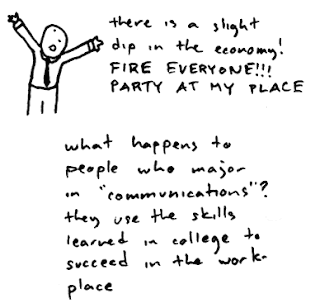 there is a slight
dip in the economy!
FIRE EVERYONE!!!
PARTY AT MY PLACE
what happens to
people who major
in "communications"?
they use the skills
learned in college to
succeed in the work-
place